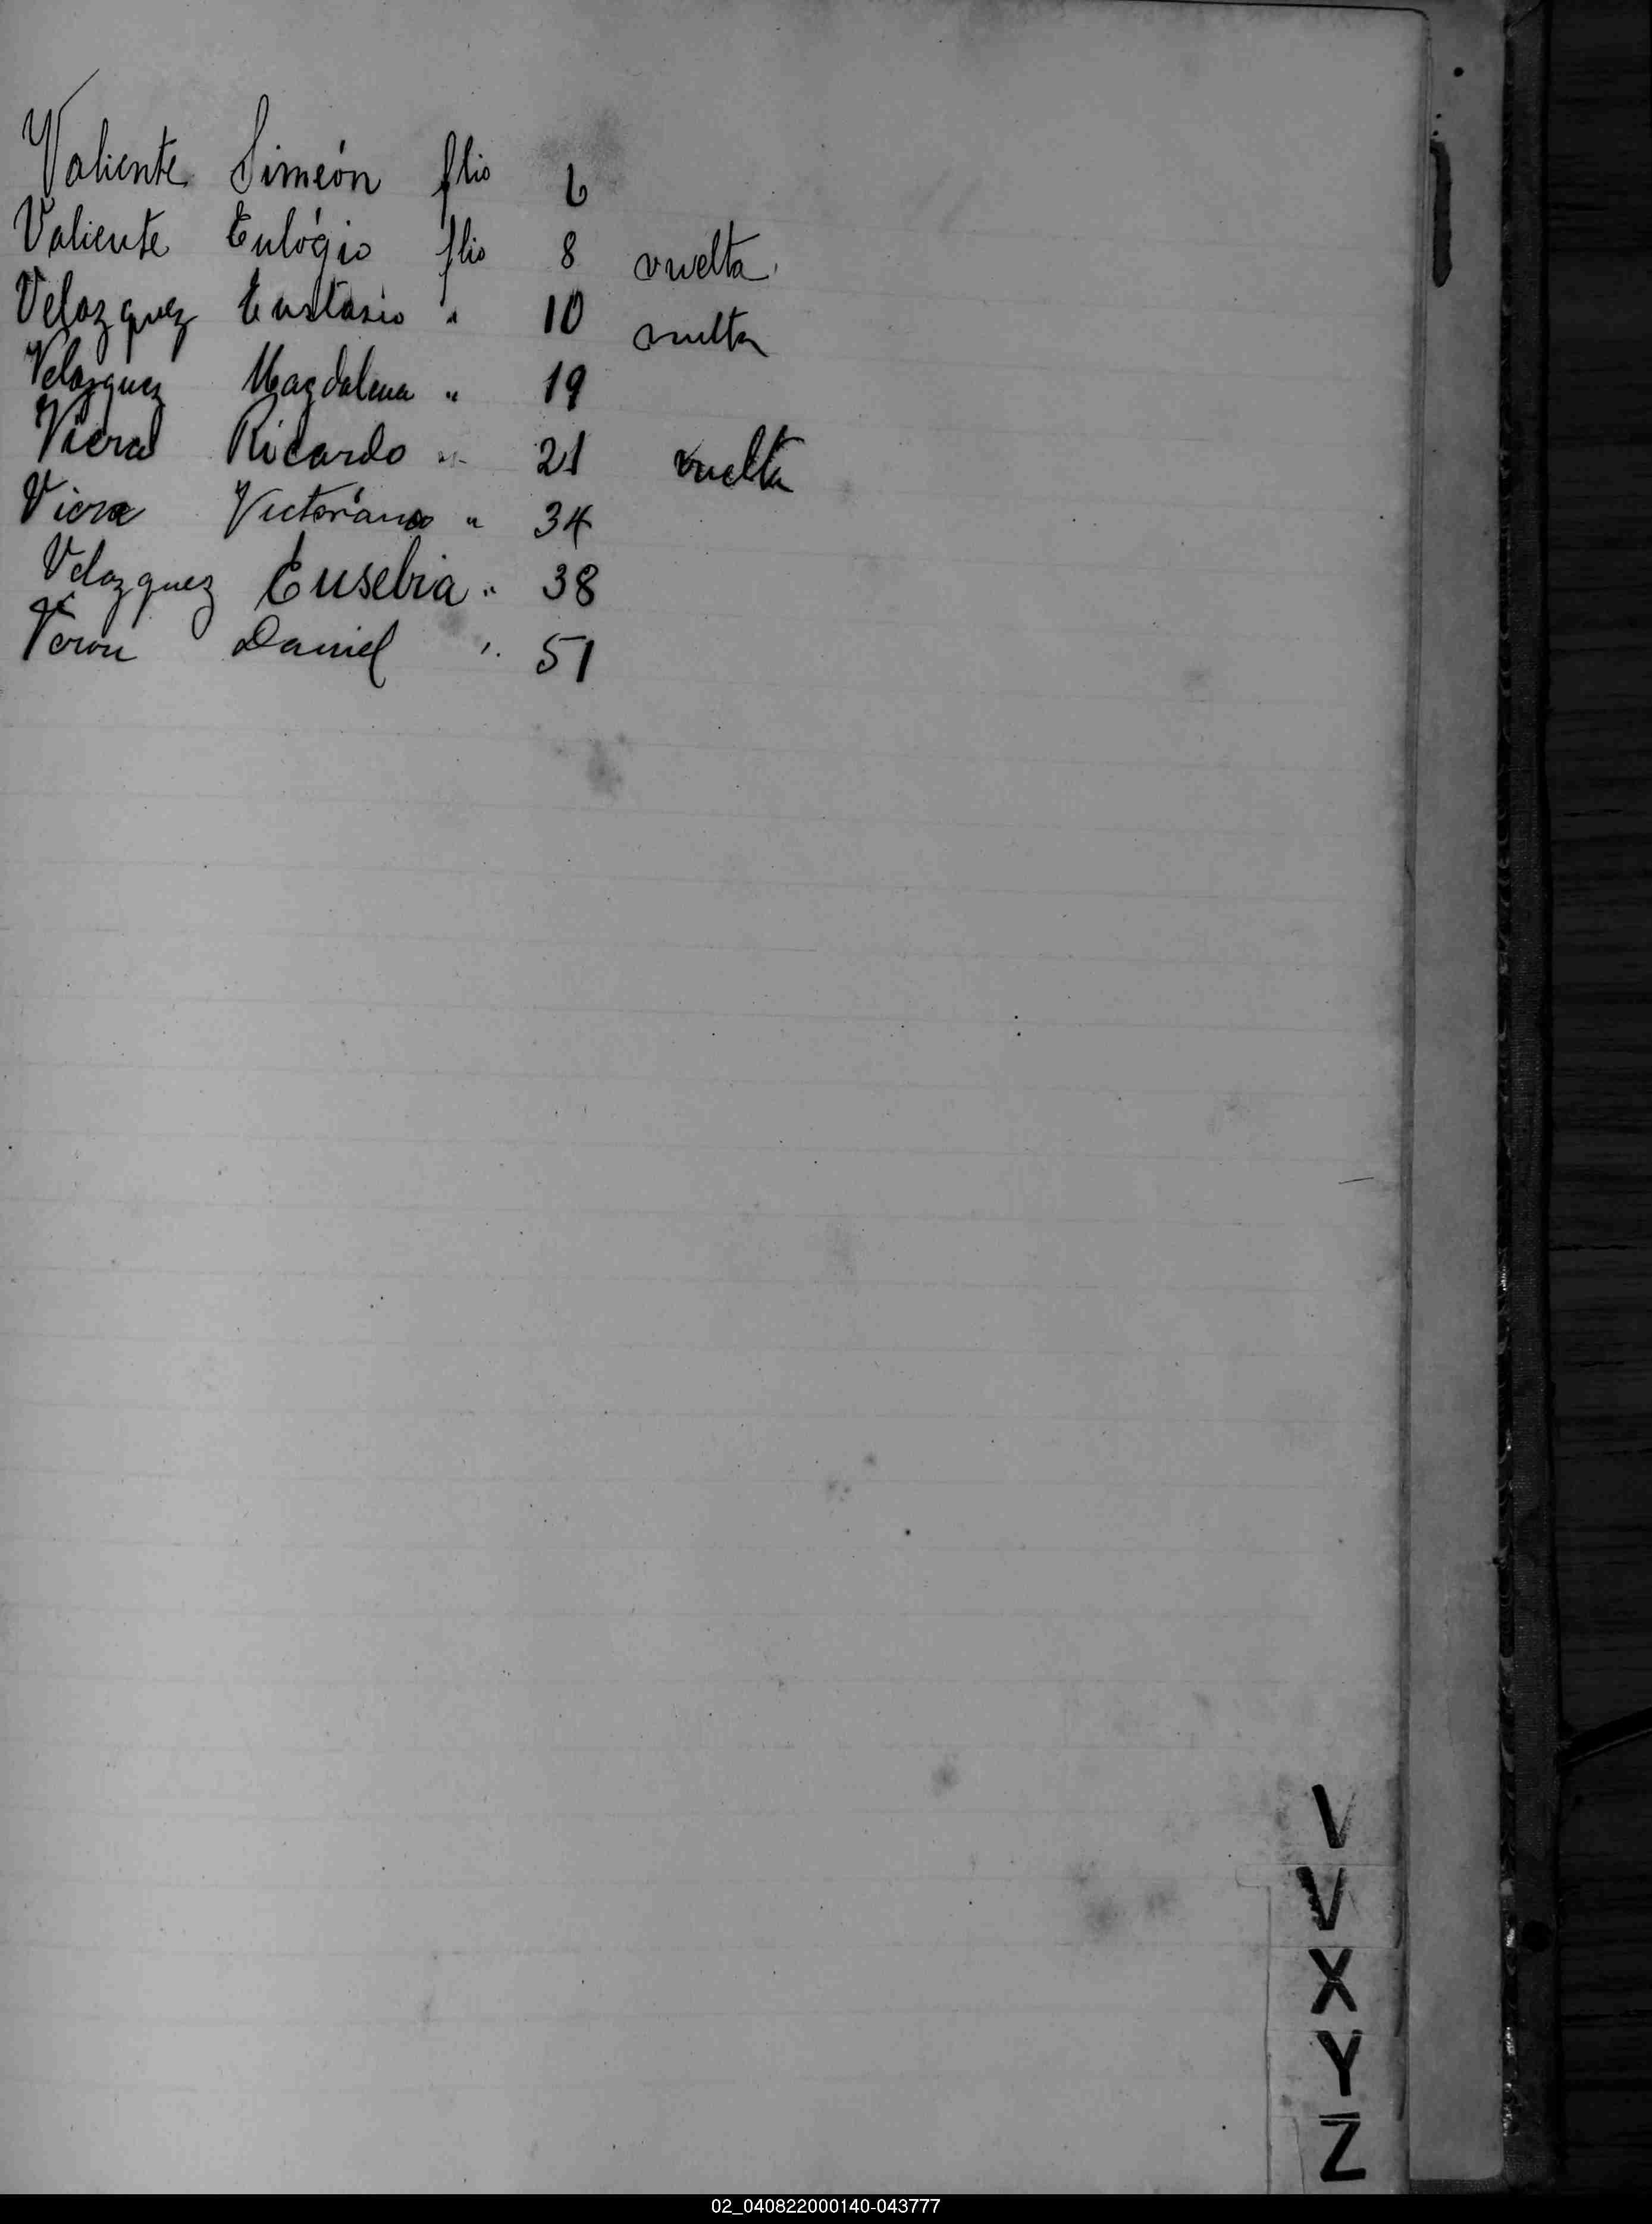 Valiente Simeón flio 6
Valiente Eulógio flio 8 vuelta
Velazquez Eustasio " 10 vuelta
Velazquez Magdalena " 19
Viera Ricardo " 21 vuelta
Viera Victoriano " 34
Velazquez Eusebia " 38
Veron Daniel " 51
V
V
X
Y
Z
02_040822000140-043777